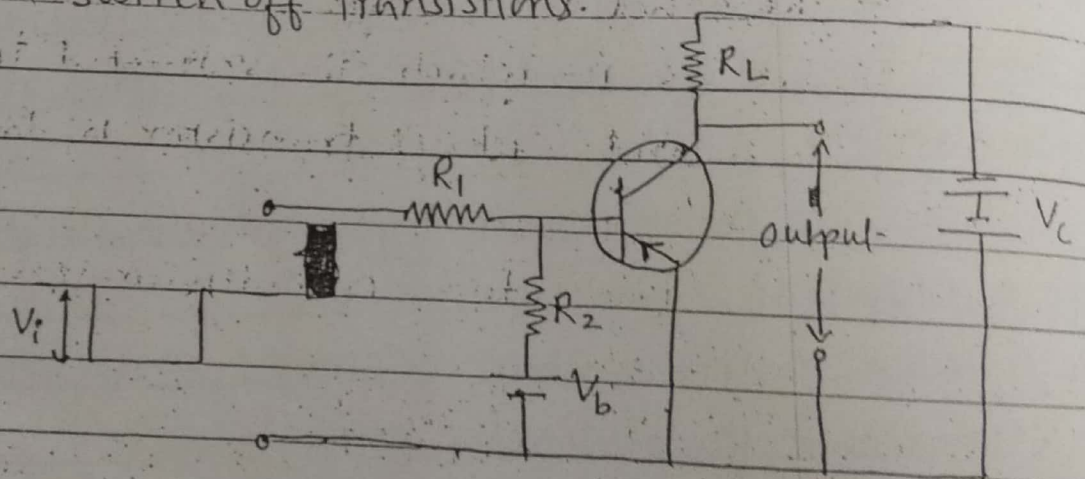 off Transistors.
RL
R1
Vc
output
Vi
R2
Vb